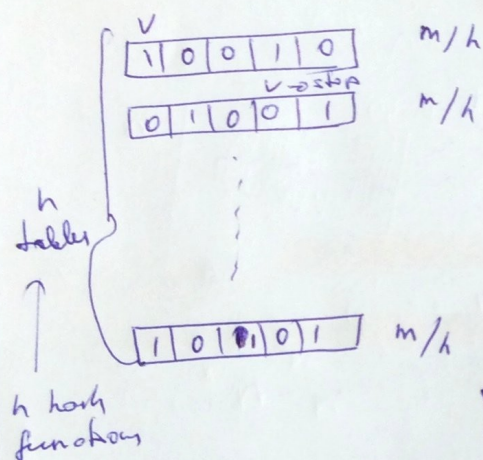 v
1 0 0 1 0 m/h
v → stop
0 1 0 0 1 m/h
h
tables
1 0 1 0 1 m/h
h hash
functions